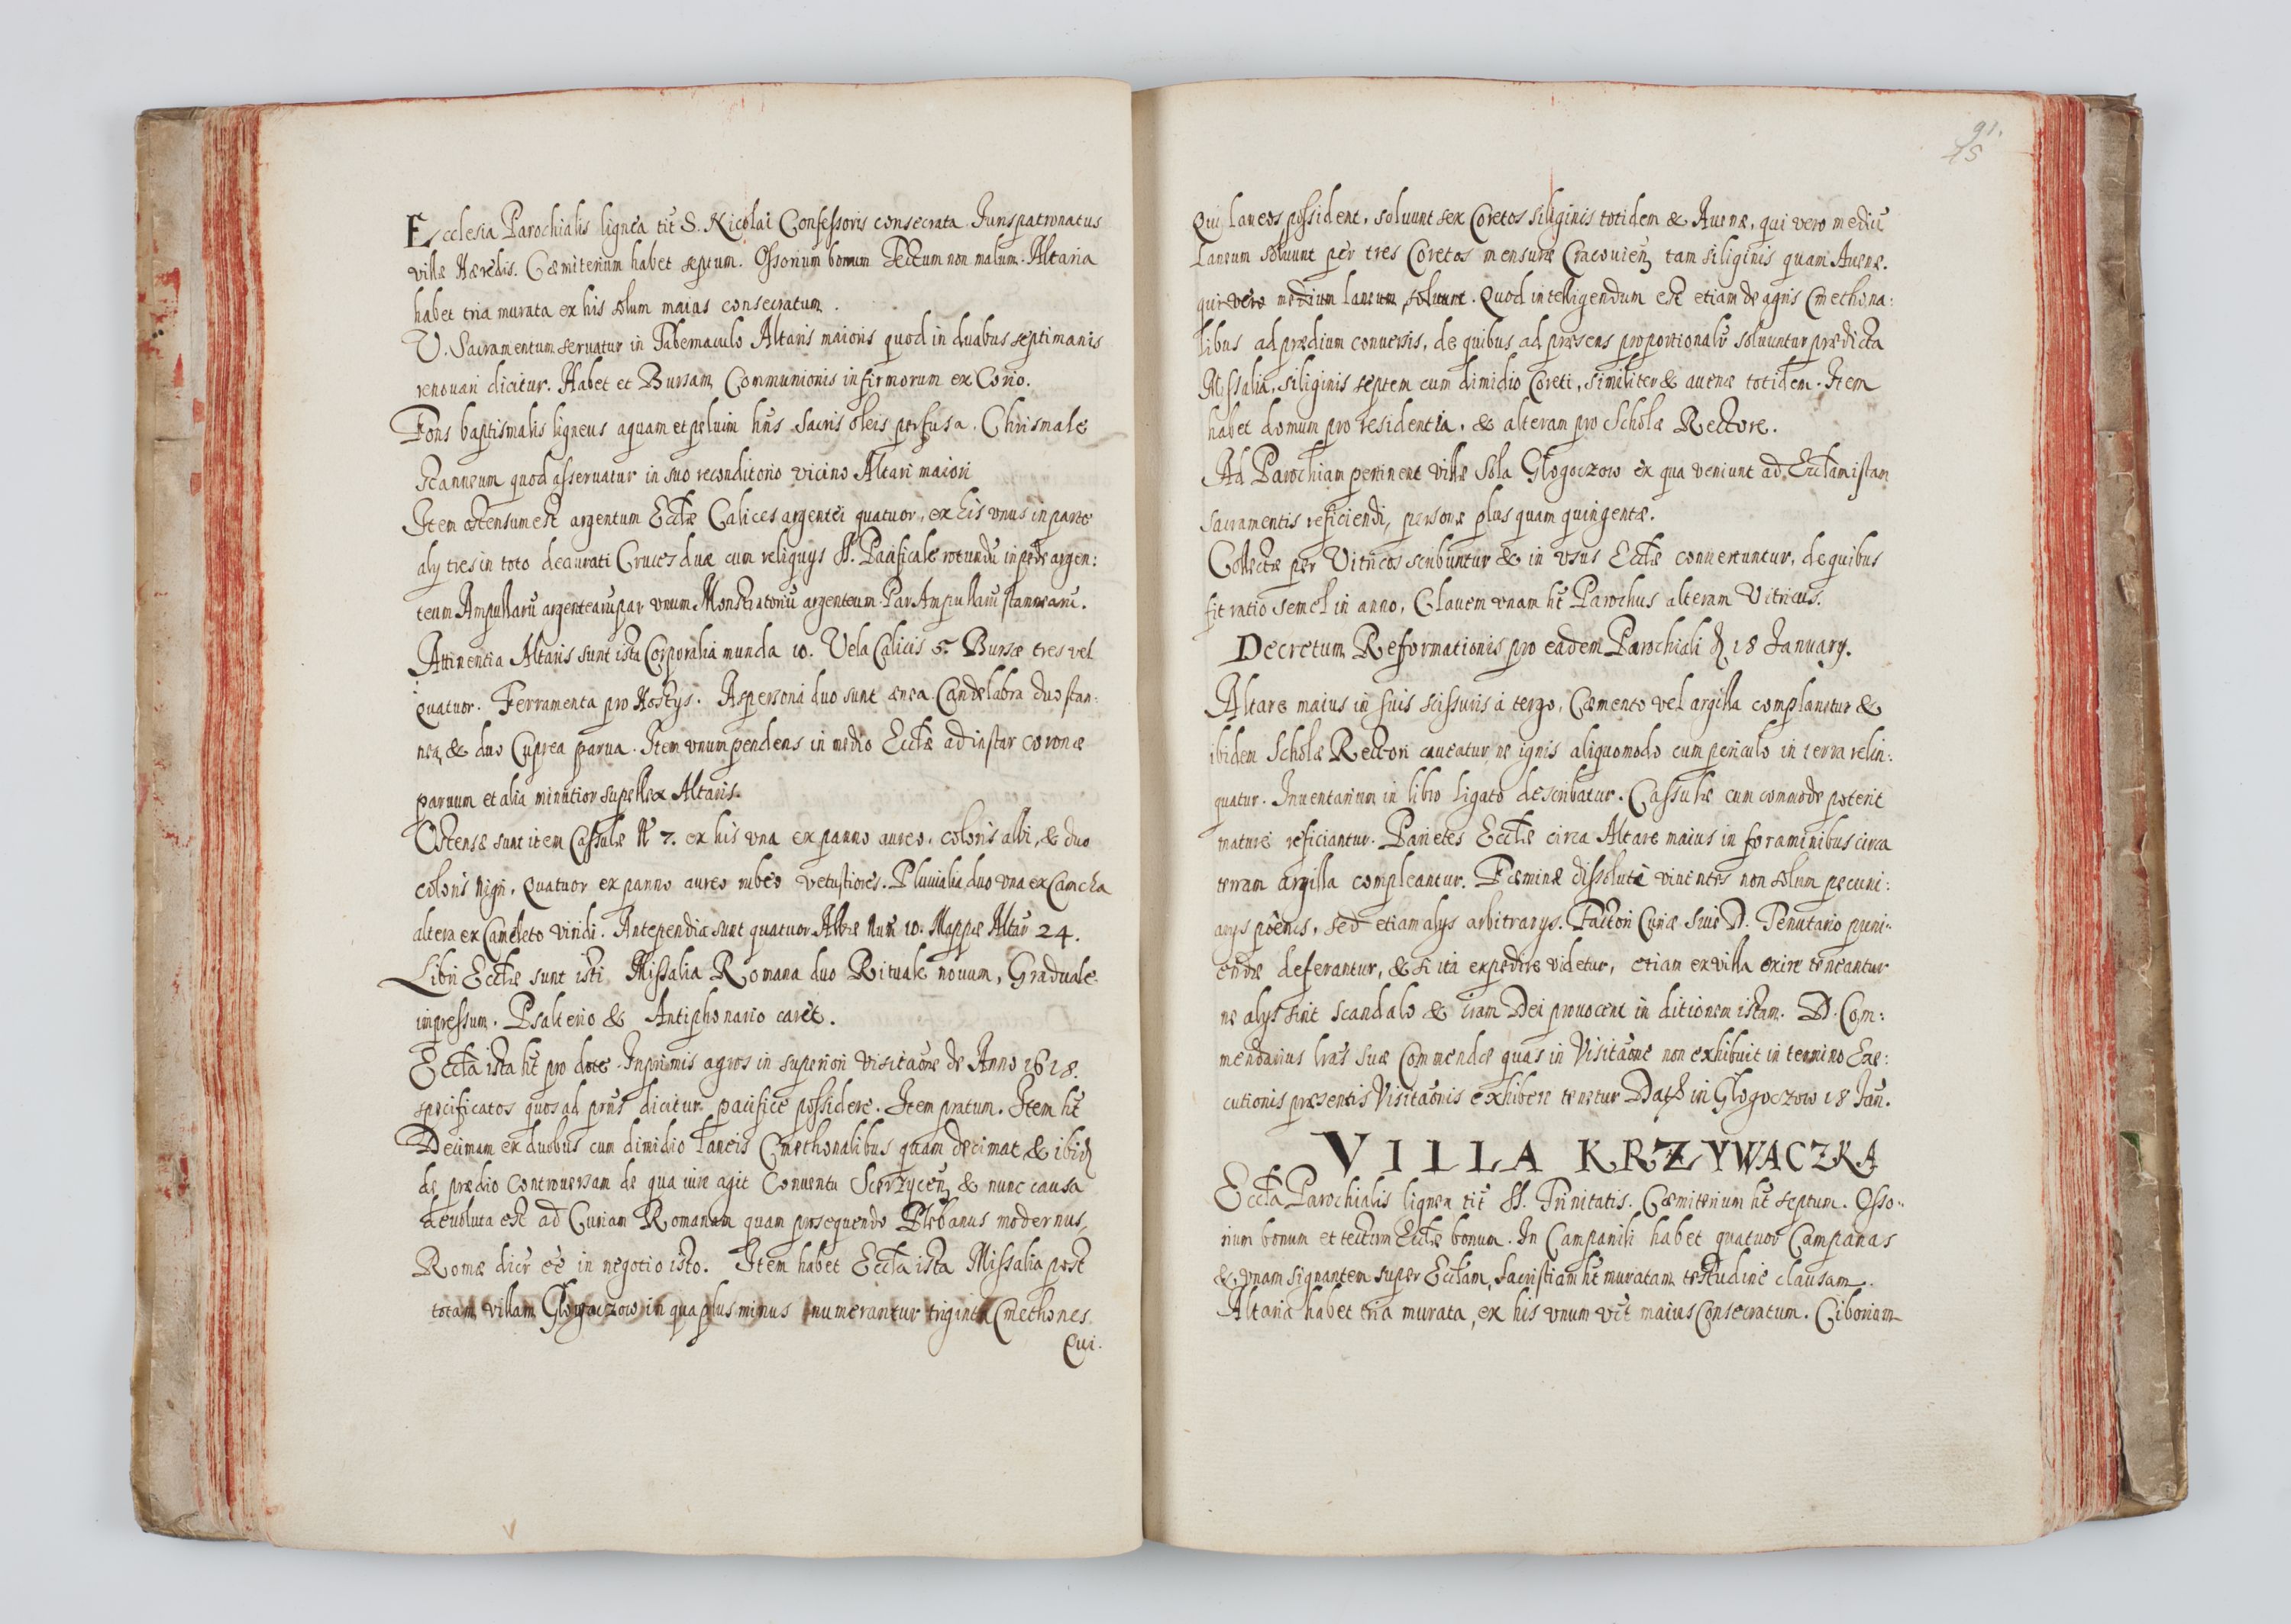 Ecclesia Parochialis lignea tit S. Nicolai Confessoris consecrata Juris patronatus
villæ Hæredis. Cæmiterium habet septum. Ossorium bonum Tectum non malum. Altaria
habet tria murata ex his solum maius consecratum.
V. Sacramentum seruatur in Tabernaculo Altaris maioris quod in duabus septimanis
renouari dicitur. Habet et Bursam Communionis infirmorum ex Corio.
Fons baptismalis ligneus aquam et peluim hñs Sacris oleis perfusa. Chrismale
stanneum quod asseruatur in suo reconditorio vicino Altari maiori
Item ostensum est argentum Ecclæ Calices argentei quatuor, ex his vnus in parte
alÿ tres in toto deaurati Cruces duæ cum reliquÿs SS. Pacificale rotundũ in pede argen:
teum Ampullarũ argentearũ par vnum Monstratoriũ argenteum Par Ampullarũ stannearũ.
Attinentia Altaris sunt ista Corporalia munda 10. Vela Calicis 5. Bursæ tres vel
quatuor. Ferramenta pro Hostÿs. Aspersoria duo sunt ænea Candelabra duo stan:
nea, & duo Cuprea parua. Item vnum pendens in medio Ecclæ ad instar coronæ
paruum et alia minutior supellex Altaris.
Ostensæ sunt item Casulæ N 7. ex his vna ex panno aureo, coloris albi, & duo
coloris nigri, quatuor ex panno aureo rubeo vetustiores. Pluuialia duo vna ex Camcha
altera ex Cameleto viridi. Antependia sunt quatuor Albæ Nuõ 10. Mappæ Altar 24.
Libri Ecclæ sunt isti Missalia Romana duo Rituale nouum, Graduale
impressum. Psalterio & Antiphonario caret.
Eccla ista ht pro dote. Inprimis agros in superiori visitaõne de Anno 1618.
specificatos quos ad prñs dicitur pacifice possidere. Item pratum. Item ht
Decimam ex duobus cum dimidio laneis Cmethonalibus quam decimat & ibid
de prædio controuersam de qua iure agit Conuentu & nunc causa
deuoluta est ad Curiam Romanam quam prosequendo Plebanus modernus,
Romæ dicr eẽ in negotio isto. Item habet Eccla ista Missalia post
totam villam Glogoczow in qua plus minus numerantur triginta Cmethones
Qui.
91.
Qui laneos possident, soluunt sex Coretos siliginis totidem & Auenæ, qui vero mediũ
laneum soluunt per tres Coretos mensuræ Cracouien, tam siliginis quam Auenæ.
qui vero medium laneum soluunt. Quod intelligendum est etiam de agris Cmethona:
libus ad prædium conuersis, de quibus ad præsens proportionalr soluuntur prædicta
Missalia, siliginis septem cum dimidio Coreti, similiter & auenæ totidem. Item
habet domum pro residentia, & alteram pro Scholæ Rectore.
Ad Parochiam pertinent villæ sola Glogoczow ex qua veniunt ad Ecclam istam
Sacramentis reficiendi, personæ plus quam quingentæ.
Collectæ per Vitricos scribuntur & in vsus Ecclæ conuertuntur, de quibus
fit ratio semel in anno, Clauem vnam ht Parochus alteram Vitricus.
Decretum Reformationis pro eadem Parochiali d 18 Januarÿ.
Altare maius in suis scissuris à tergo, Cæmento vel argilla complanetur &
ibidem Scholæ Rectori caueatur ne ignis aliquomodo cum periculo in terra relin:
quatur. Inuentarium in libro ligato describatur. Casulæ cum commode poterit
mature reficiantur. Parietes Ecclæ circa Altare maius in foraminibus circa
terram argilla compleantur. Fæminæ dissolutè viuentes non solum pecuni:
arÿs pœnis, sed etiam alÿs arbitrarÿs. Factori Curiæ siue D. Tenutario puni:
endæ deferantur, & si ita expedire videtur, etiam ex villa exire teneantur
ne alÿs sint scandalo & iram Dei prouocent in ditionem istam. D. Com:
mendarius lras suæ Commendæ quas in Visitaõne non exhibuit in termino Exe:
cutionis præsentis Visitaõnis exhibere tenetur Dat in Glogoczow 18 Jañ.
VILLA KRZYWACZKA
Eccla Parochialis lignea tit SS. Trinitatis. Cæmiterium ht septum. Osso:
rium bonum et tectum Ecclæ bonum. In Campanili habet quatuor Campanas
& vnam signantem super Ecclam, Sacristiam ht muratam testudine clausam.
Altaria habet tria murata, ex his vnum vit maius Consecratum. Ciborium